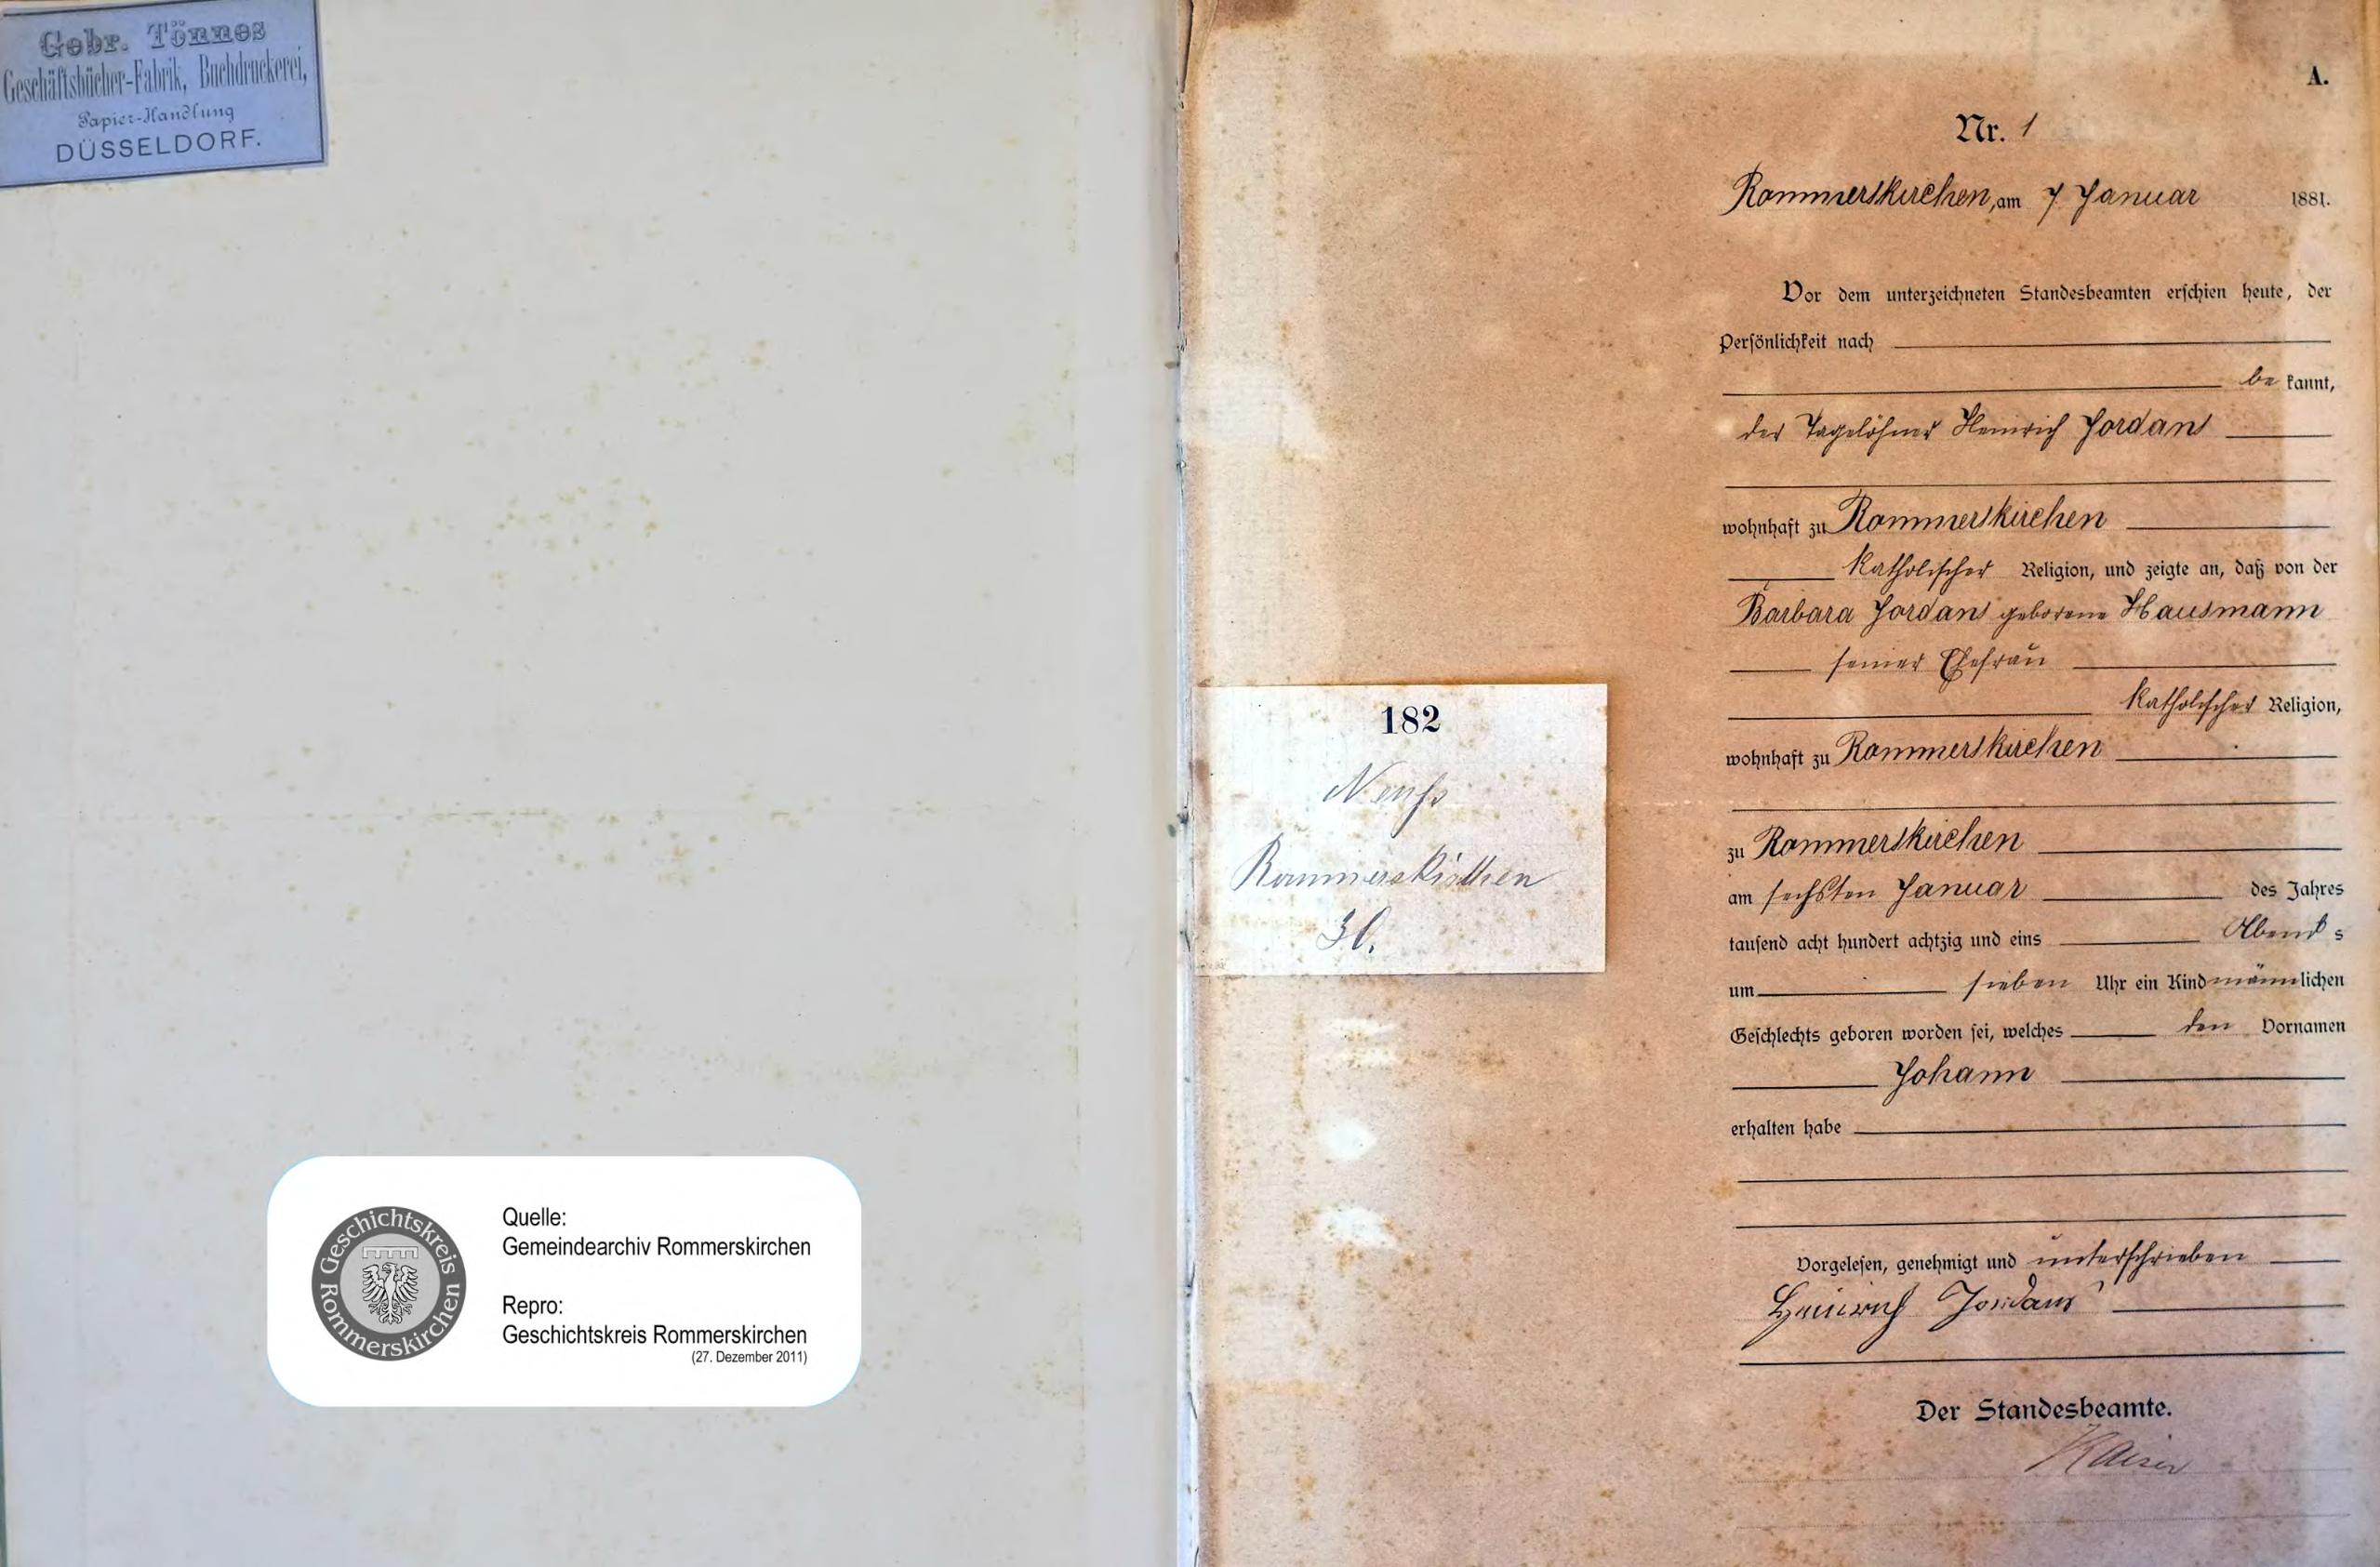 Gebr. Tönnes
Geschäftsbücher-Fabrik, Buchdruckerei,
Papier-Handlung
DÜSSELDORF.
Geschichtskreis Rommerskirchen
Quelle:
Gemeindearchiv Rommerskirchen
Repro:
Geschichtskreis Rommerskirchen
(27. Dezember 2011)
182
Neuß
Rommerskirchen
A.
Nr. 1
Rommerskirchen, am 7 Januar 1881.
Vor dem unterzeichneten Standesbeamten erschien heute, der
Persönlichkeit nach
be kannt,
der Tagelöhner Heinrich Jordans
wohnhaft zu Rommerskirchen
katholischer Religion, und zeigte an, daß von der
Barbara Jordans geborene Hausmann
seiner Ehefrau
katholischer Religion,
wohnhaft zu Rommerskirchen
zu Rommerskirchen
am sechsten Januar des Jahres
tausend acht hundert achtzig und eins Abend s
um sieben Uhr ein Kind männlichen
Geschlechts geboren worden sei, welches den Vornamen
Johann
erhalten habe
Vorgelesen, genehmigt und unterschrieben
Heinrich Jordans
Der Standesbeamte.
Kaiser